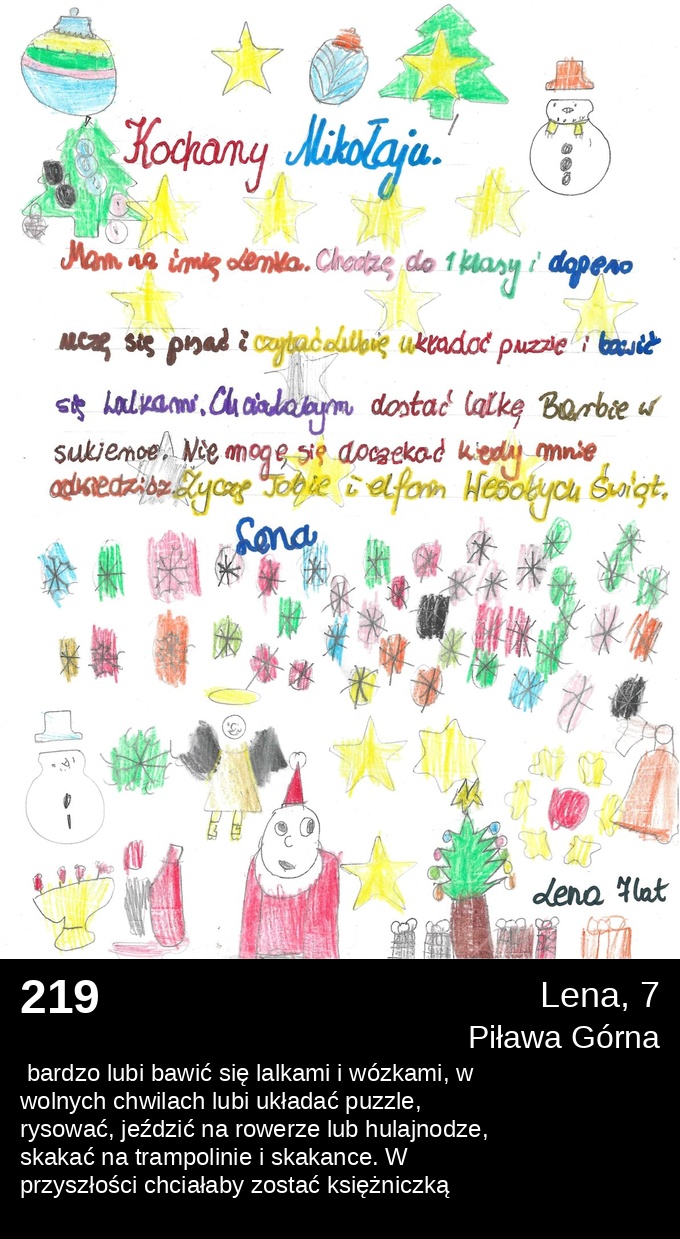 Kochany Mikołaju.
Mam na imię Lenka. Chodzę do 1 klasy i dopero
uczę się pisać i czytać. Lubię układać puzzle i bawić
się lalkami. Chciałabym dostać lalkę Barbie w
sukience. Nie mogę się doczekać kiedy mnie
odwiedzisz. Życzę Tobie i elfom Wesołych Świąt.
Lena
Lena 7 lat
219
Lena, 7
Piława Górna
bardzo lubi bawić się lalkami i wózkami, w
wolnych chwilach lubi układać puzzle,
rysować, jeździć na rowerze lub hulajnodze,
skakać na trampolinie i skakance. W
przyszłości chciałaby zostać księżniczką